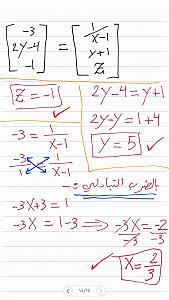 [-3] = [1/x-1]
[2y-4] = [y+1]
[-1] = [Z]
Z = -1
2y-4 = y+1
2y-y = 1+4
y = 5
-3 = 1/x-1
-3/1 = 1/x-1
بالضرب التبادلي :-
-3x+3 = 1
-3x = 1-3 ⇒ -3x/-3 = -2/-3
x = 2/3